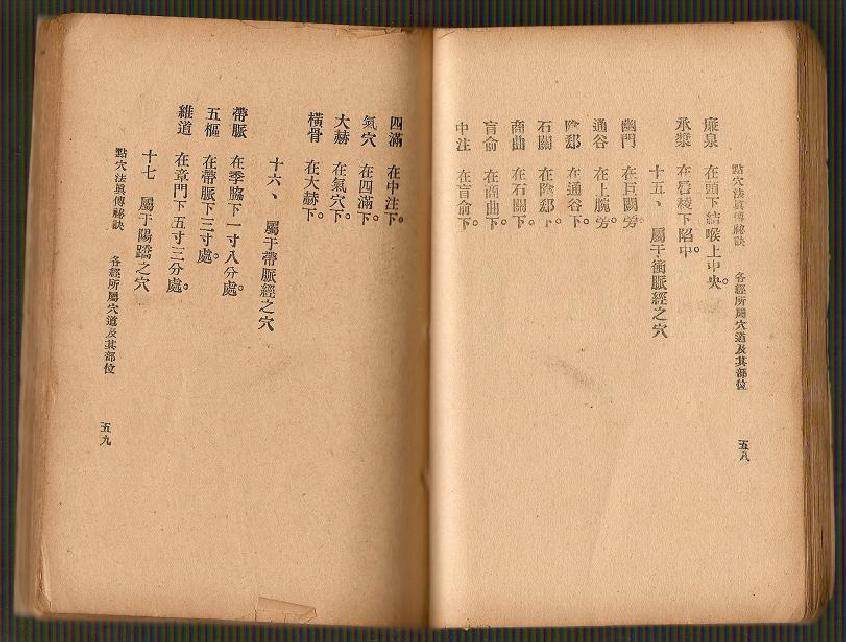 點穴法眞傳祕訣　各經所屬穴道及其部位　五八
廉泉　在頭下結喉上中央。
承漿　在唇稜下陷中。
十五、屬于衝脈經之穴
幽門　在巨闕旁。
通谷　在上脘旁。
陰郄　在通谷下。
石關　在陰郄下。
商曲　在石關下。
肓俞　在商曲下。
中注　在肓俞下。
四滿　在中注下。
氣穴　在四滿下。
大赫　在氣穴下。
橫骨　在大赫下。
十六、屬于帶脈經之穴
帶脈　在季脇下一寸八分處。
五樞　在帶脈下三寸處。
維道　在章門下五寸三分處。
十七　屬于陽蹻之穴
點穴法眞傳祕訣　各經所屬穴道及其部位　五九